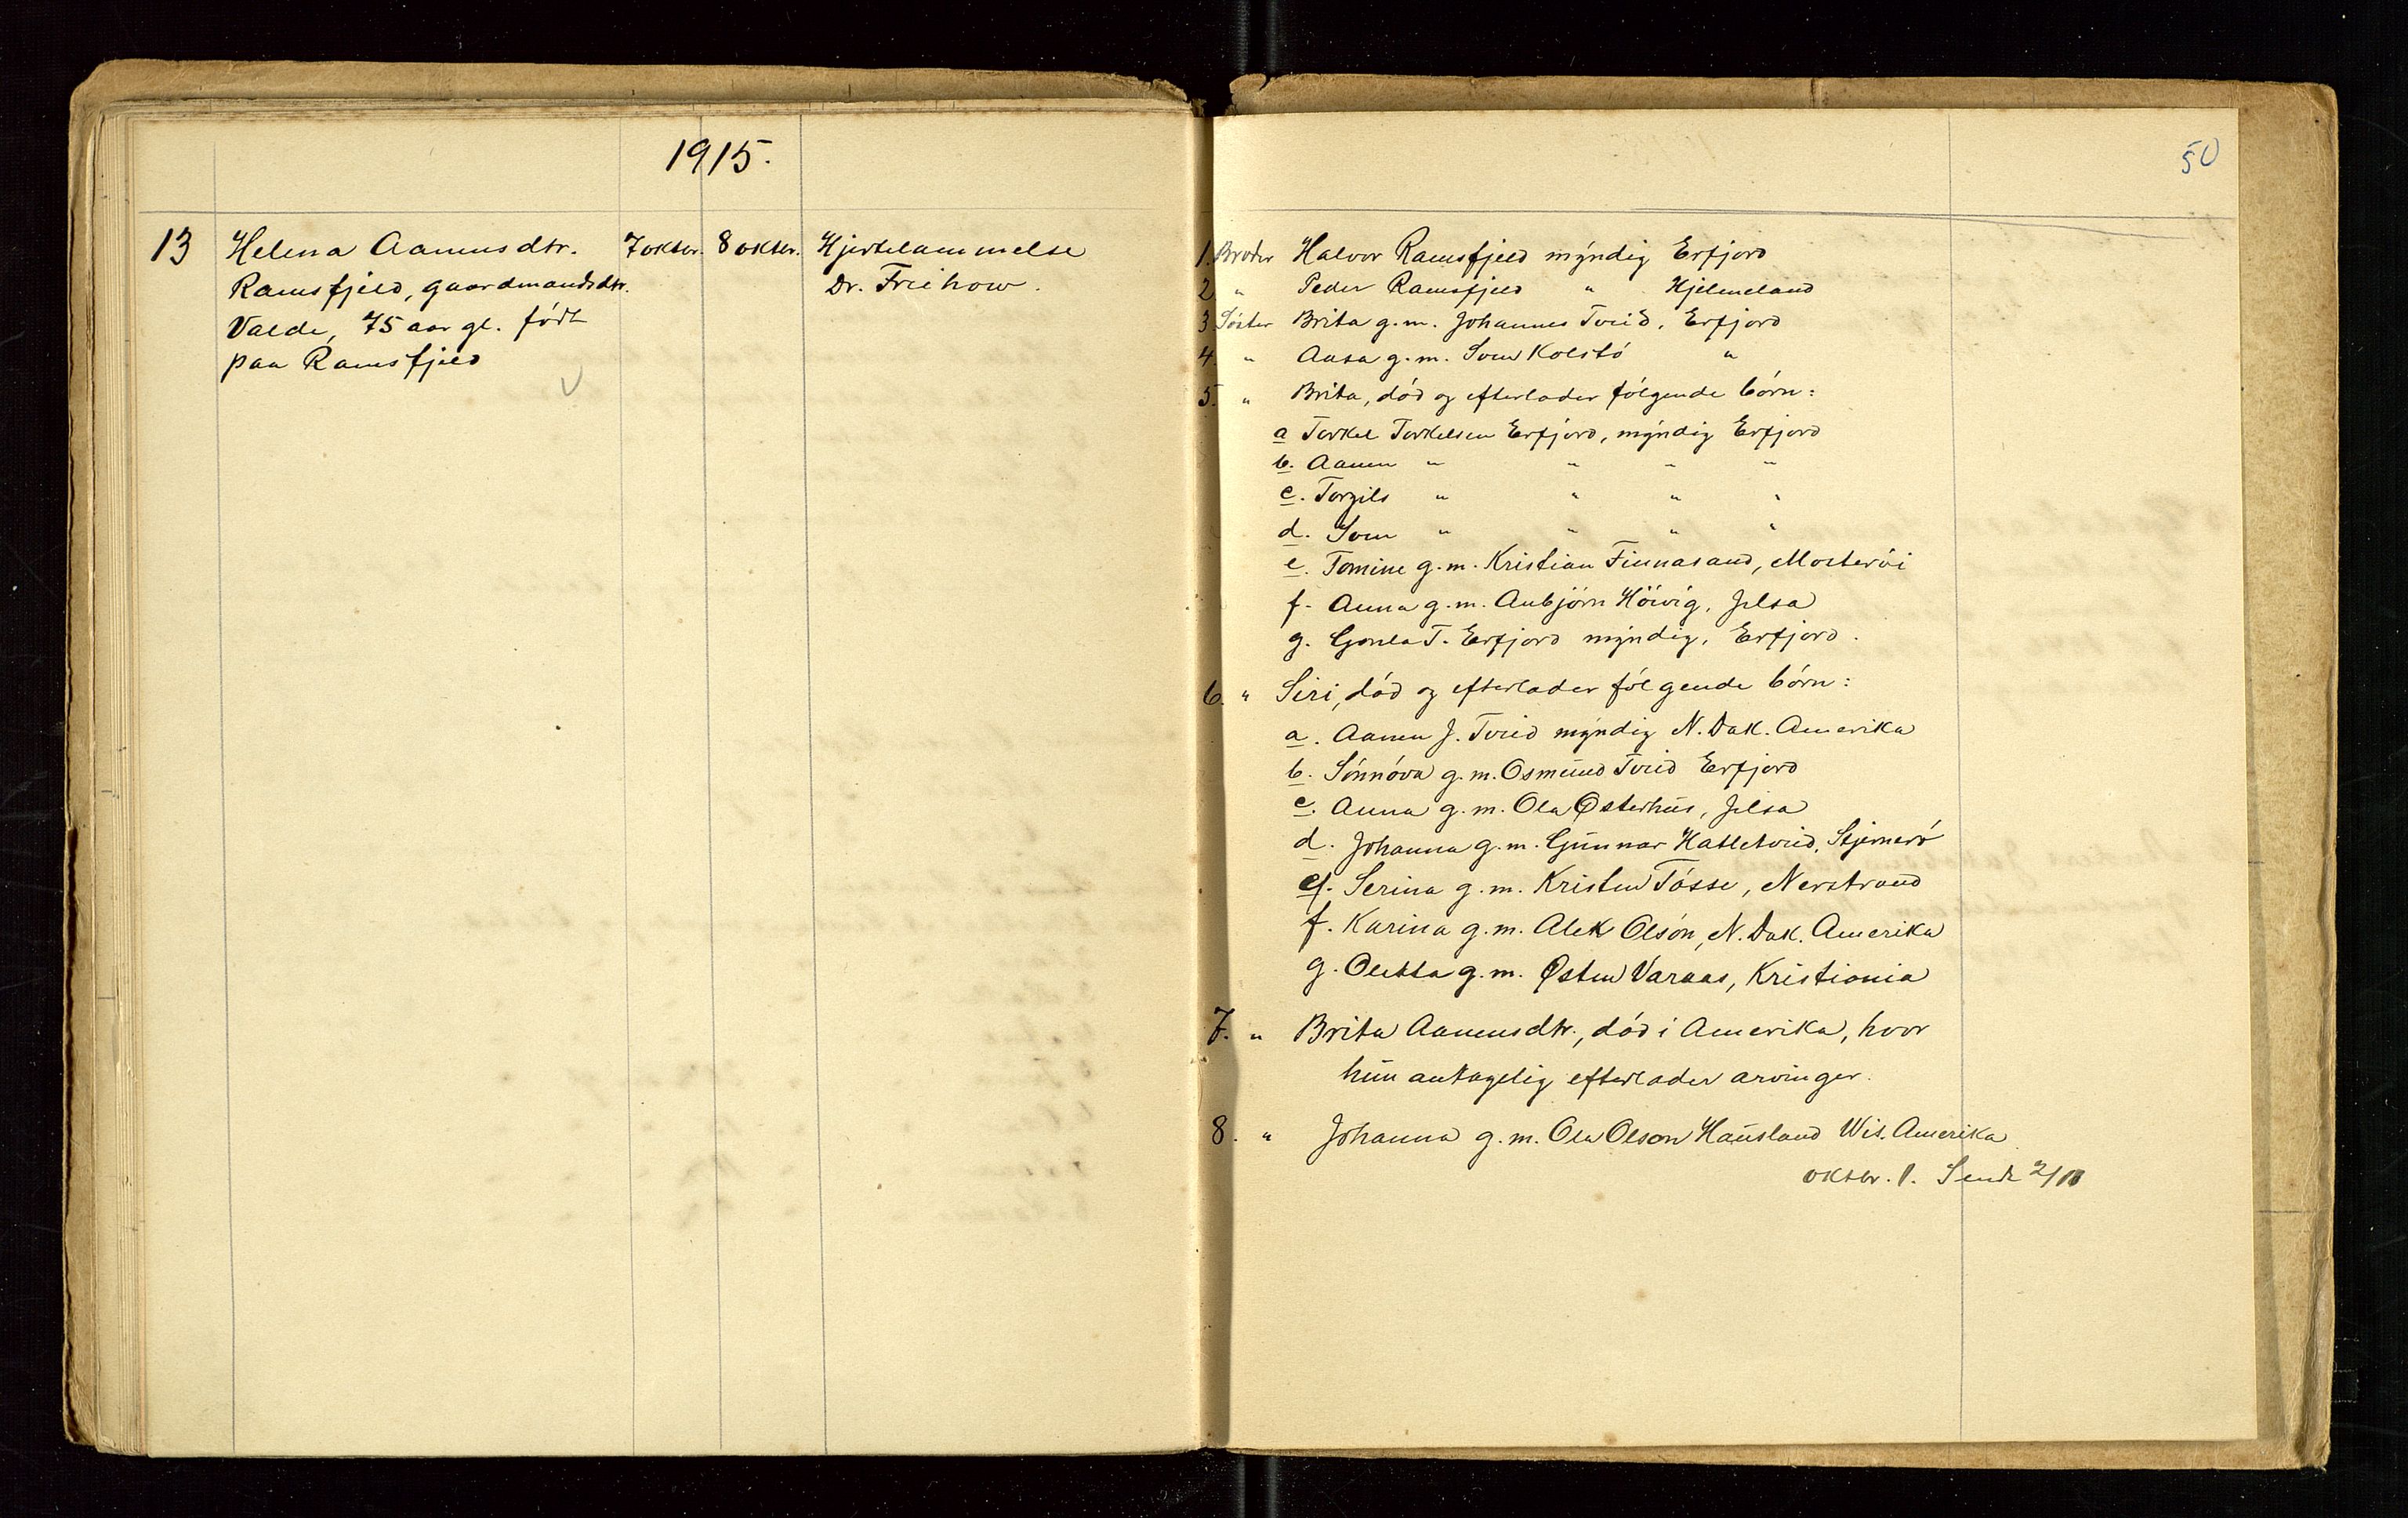 1915.
13 Helena Aamunsdtr. 7 oktbr. 8 oktbr. Hjertelammelse
Ramsfjeld, gaardmandsdtr. Dr. Freihow.
Valde, 75 aar gl. født
paa Ramsfjeld
50
1. Broder Halvor Ramsfjeld myndig Erfjord
2 " Peder Ramsfjeld " Hjelmeland
3 Søster Brita g.m. Johannes Tveid, Erfjord
4. " Aasa g.m. Sven Kolstø "
5. " Brita, død og efterlader følgende børn:
a Torkel Torkelsen Erfjord, myndig Erfjord
b. Aamun " " " "
c. Torgils " " " "
d. Sven " " " "
e. Tomine g.m. Kristian Finnasand, Mosterøi
f. Anna g.m. Anbjørn Høivig, Jelsa
g. Gonla T. Erfjord myndig, Erfjord.
6. " Siri, død og efterlader følgende børn:
a. Aamun J. Tveid myndig N. Dak. Amerika
b. Sønnøva g.m. Osmund Tveid Erfjord
c. Anna g.m. Ola Østerhus, Jelsa
d. Johanna g.m. Gunnar Hatletveid, Stjernerø
e. Serina g.m. Kristen Tøsse, Nerstrand
f. Karina g.m. Alek Olsøn, N. Dak. Amerika
g. Oletta g.m. Østen Varaas, Kristiania
7. " Brita Aamunsdtr., død i Amerika, hvor
hun antagelig efterlader arvinger.
8. " Johanna g.m. Ola Olson Hausland Wis. Amerika
oktbr. 1. Sendt 2/11